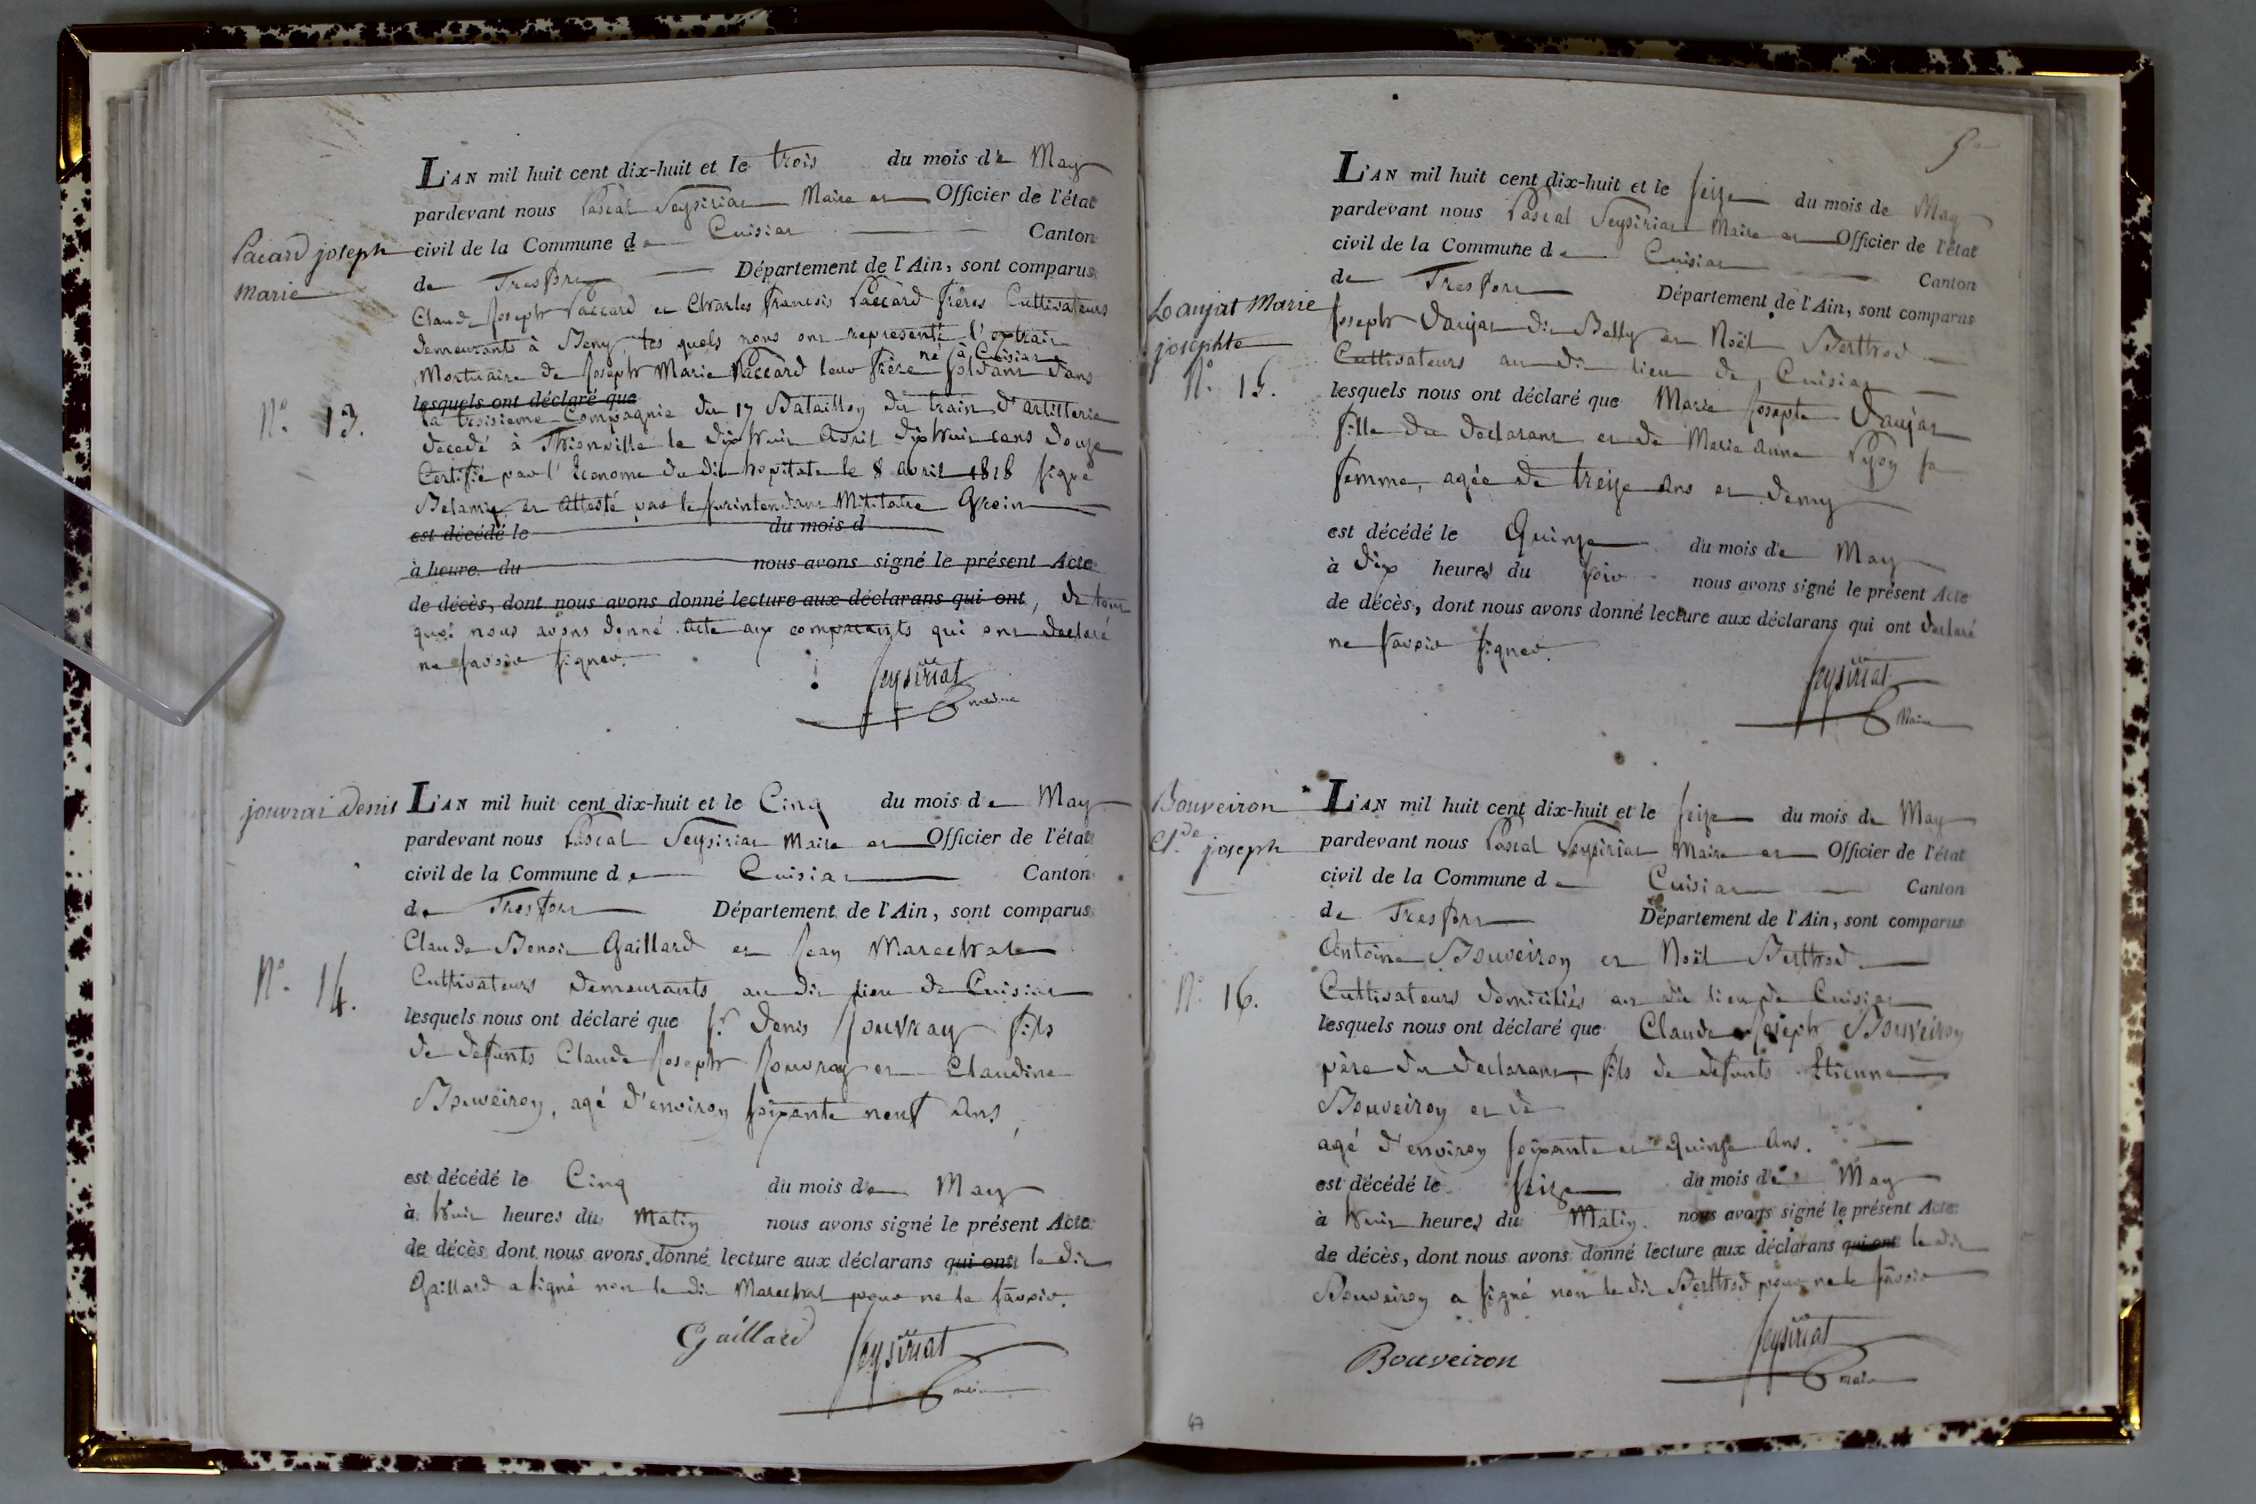 Pacard joseph
marie
N.° 13.
L'AN mil huit cent dix-huit et le trois du mois de May
pardevant nous Pascal Seysiriat Maire et Officier de l'état
civil de la Commune de Cuisiat Canton
de Tresfort Département de l'Ain, sont comparus
Claude Joseph Paccard et Charles francois Paccard frères Cultivateurs
demeurants à Beny, les quels nous ont representé l'extrait
né à Cuisiat
Mortuaire de Joseph Marie Paccard leur frère soldat dans
lesquels ont déclaré que
la troisieme Compagnie du 17 Bataillon du train d'artillerie
decedé à Thionville le dix huit avril dix huit cent douze
Certifié par l'Econome du dit hopital le 8 avril 1818 signé
Belamy et attesté par le surintendant Militaire
est décédé le du mois d
à heure du nous avons signé le présent Acte
de décès, dont nous avons donné lecture aux déclarans qui ont, de tout
quoi nous avons donné acte aux comparants qui ont declaré
ne savoir signer.
Seysiriat
maire
jouvrai Denis
N.° 14.
L'AN mil huit cent dix-huit et le Cinq du mois de May
pardevant nous Pascal Seysiriat Maire et Officier de l'état
civil de la Commune de Cuisiat Canton
de Tresfort Département de l'Ain, sont comparus
Claude Benoit Gaillard et Jean Marechal
Cultivateurs demeurants au dit lieu de Cuisiat
lesquels nous ont déclaré que Sr Denis Jouvray fils
de defunts Claude Joseph Jouvray et Claudine
Bouveiron, agé d'environ soixante neuf ans,
est décédé le Cinq du mois de May
à huit heures du Matin nous avons signé le présent Acte
de décès dont nous avons donné lecture aux déclarans qui ont le dit
Gaillard a signé non le dit Marechal pour ne le savoir.
Gaillard Seysiriat
maire
Loaujat Marie
josephte
N.° 15.
L'AN mil huit cent dix-huit et le seize du mois de May
pardevant nous Pascal Seysiriat Maire et Officier de l'état
civil de la Commune de Cuisiat Canton
de Tresfort Département de l'Ain, sont comparus
Joseph Daujat dit Belly et Noël Berthod
Cultivateurs au dit lieu de Cuisiat
lesquels nous ont déclaré que Marie Josepte Daujat
fille du declarant et de Marie Anne Pyon sa
femme, agée de treize ans et demy
est décédé le Quinze du mois de May
à dix heures du soir nous avons signé le présent Acte
de décès, dont nous avons donné lecture aux déclarans qui ont declaré
ne savoir signer.
Seysiriat
Maire
Bouveiron
Cl.de joseph
N.° 16.
L'AN mil huit cent dix-huit et le seize du mois de May
pardevant nous Pascal Seysiriat Maire et Officier de l'état
civil de la Commune de Cuisiat Canton
de Tresfort Département de l'Ain, sont comparus
Antoine Bouveiron et Noël Berthod
Cultivateurs domiciliés au dit lieu de Cuisiat
lesquels nous ont déclaré que Claude Joseph Bouveiron
père du declarant, fils de defunts Etienne
Bouveiron et de
agé d'environ soixante et Quinze Ans.
est décédé le seize du mois de May
à huit heures du Matin. nous avons signé le présent Acte
de décès, dont nous avons donné lecture aux déclarans qui ont le dit
Bouveiron a signé non le dit Berthod pour ne le savoir
Bouveiron Seysiriat
maire
47